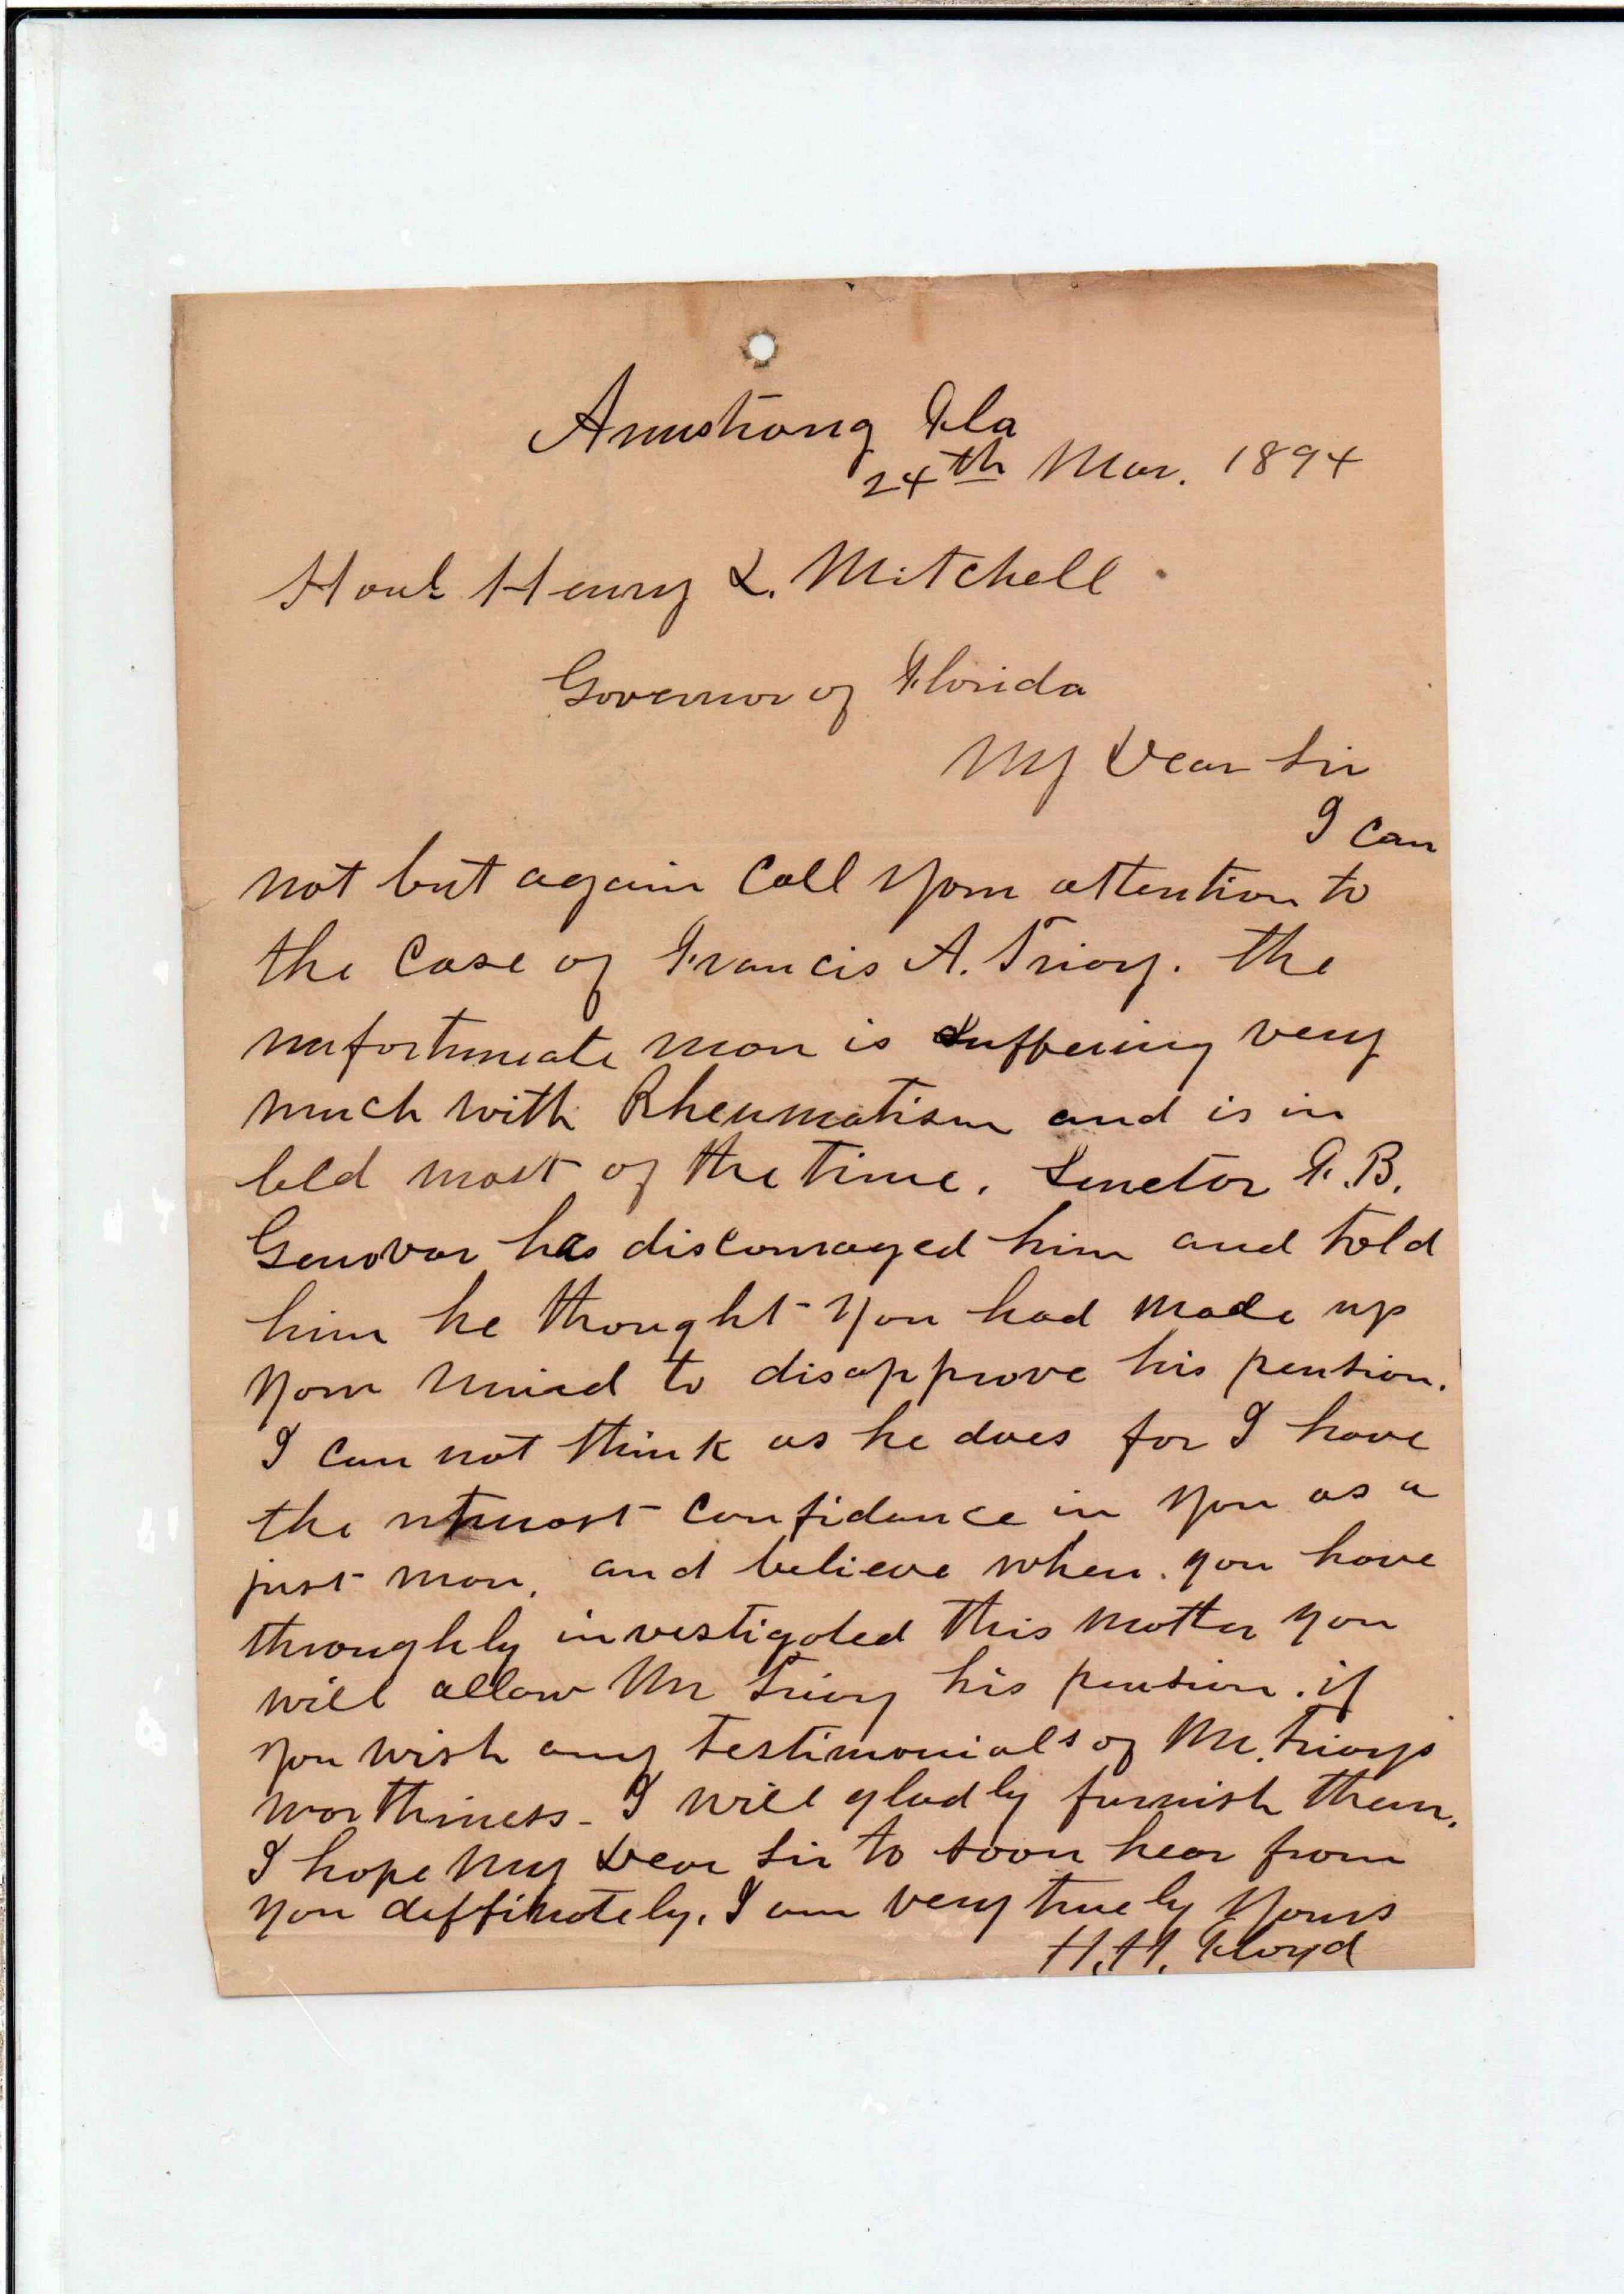 Armstrong Fla
24th Mar. 1894
Honl Henry L. Mitchell
Governor of Florida
My Dear Sir
I can
not but again call your attention to
the case of Francis A. Triay. The
unfortunate man is suffering very
much with Rheumatism and is in
bed most of the time. Senetor F. B.
Genovar has discouraged him and told
him he thought you had made up
your mind to disapprove his pention.
I can not think as he does for I have
the utmost confidence in you as a
just man, and believe when you have
throughly investigated this matter you
will allow Mr Triay his pention. if
you wish any testimonials of Mr. Triay's
worthiness - I will gladly furnish them.
I hope My Dear Sir to soon hear from
you deffinotely. I am very truely yours
H. H. Floyd